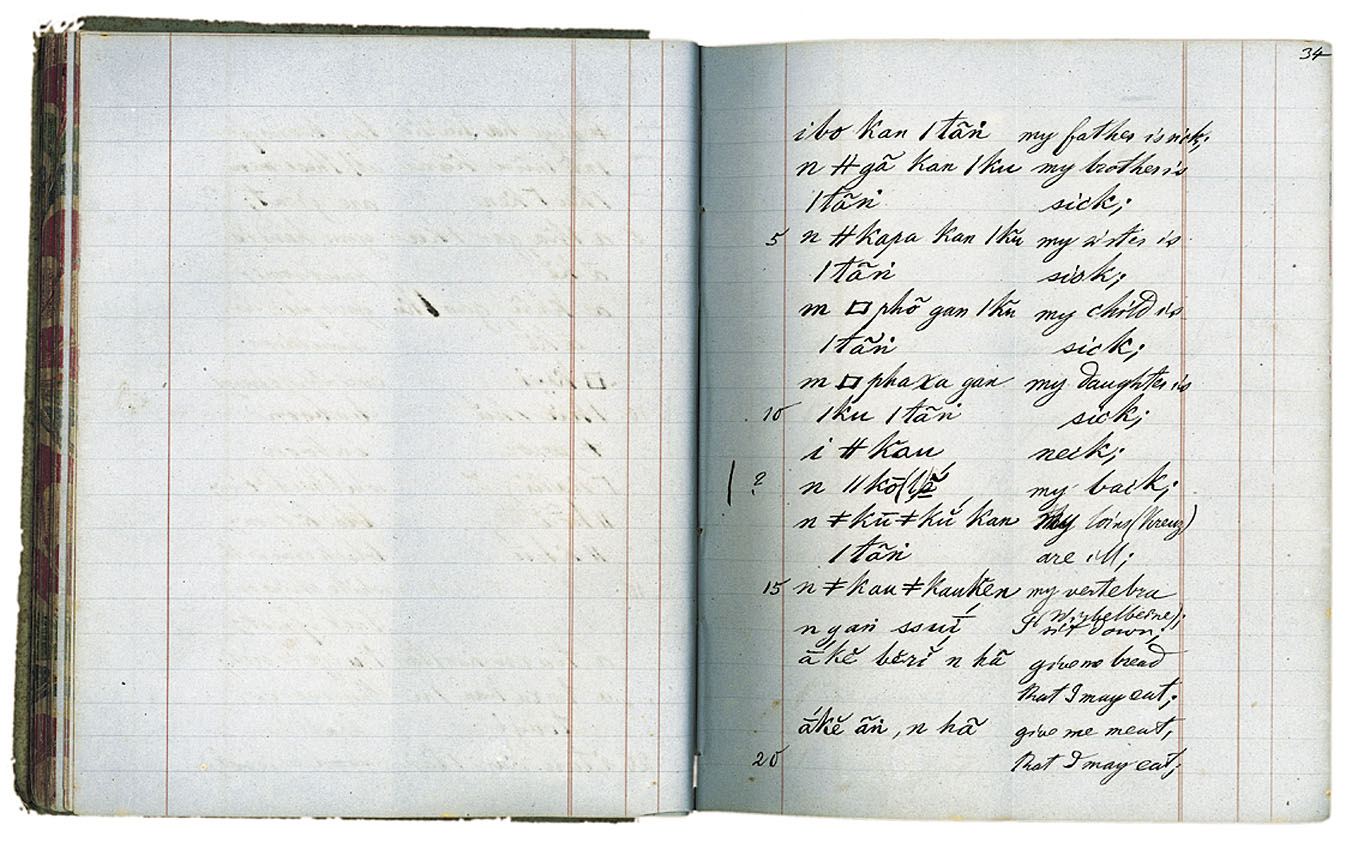 34
ibo kan |tãṅ my father is sick;
n ǂgā kan |ku my brother is
|tãṅ sick;
5 n ǂkapa kan |kũ my sister is
|tãṅ sick;
m □phõ gan |kũ my child is
|tãṅ sick;
m □phaxa gan my daughter is
10 |ku |tãṅ sick;
i ǂkau neck;
| ? n ||kõ my back;
n ≠kū≠kú kan My loins (Kreuz)
|tãṅ are ill;
15 n ≠kau≠kauken my vertebra
(Wirbelbeine);
n gaṅ ssuī I sit down;
ākĕ bĕrĭ n hã give me bread
that I may eat;
ákĕ ãṅ, n hã give me meat,
20 that I may eat;